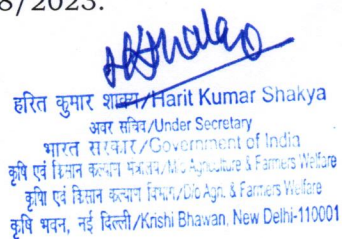 8/2023.
हरित कुमार शाक्य/Harit Kumar Shakya
अवर सचिव/Under Secretary
भारत सरकार/Government of India
कृषि एवं किसान कल्याण मंत्रालय/M/o Agriculture & Farmers Welfare
कृषि एवं किसान कल्याण विभाग/D/o Agri. & Farmers Welfare
कृषि भवन, नई दिल्ली/Krishi Bhawan, New Delhi-110001